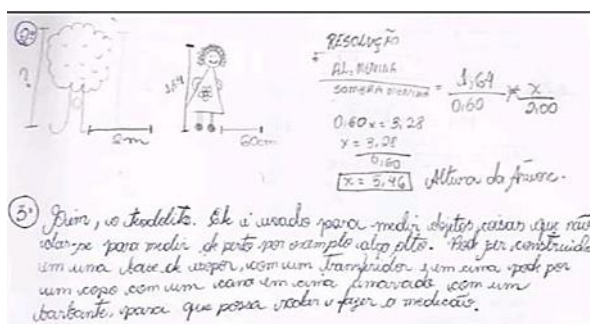 2º
?
2m
1,64
60cm
RESOLUÇÃO
AL. MENINA
SOMBRA MENINA = 1,64 x
0,60 2,00
0,60x = 3,28
x = 3,28
0,60
x = 5,46 Altura da Árvore.
3º Sim, o teodolito. Ele é usado para medir objetos, coisas que não
para medir de perto por exemplo algo alto. Pode ser construido
um uma base de com um transferidor e em cima pode por
um copo com um cano em cima amarrado com um
barbante, para que possa rodar e fazer a medicão.